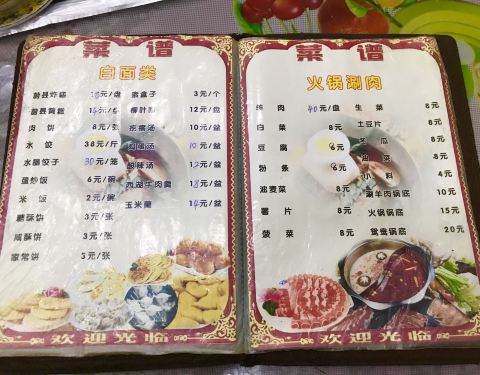 菜 谱
白面类
蔚县炸糕 /盘
蔚县黄糕 /盘
肉 饼 8元/张
水 饺 38元/斤
水馅饺子 30元/笼
蛋炒饭 6元/碗
米 饭 2元/碗
糖酥饼 3元/张
咸酥饼 3元/张
家常饼 3元/张
素盒子 3元/个
柳叶面 12元/盆
疙瘩汤 10元/盆
10元/盆
酸辣汤 12元/盆
西湖牛肉羹 18元/盆
玉米羹 14元/盆
欢迎光临
菜 谱
火锅涮肉
纯 肉 40元/盘
白 菜 8元
豆 腐 8元
粉 条 8元
油麦菜 8元
薯 片 8元
菠 菜 8元
生 菜 8元
土豆片 8元
冬 瓜 8元
菜 8元
小 料 4元
涮羊肉锅底 10元
火锅锅底 15元
鸳鸯锅底 20元
欢迎光临